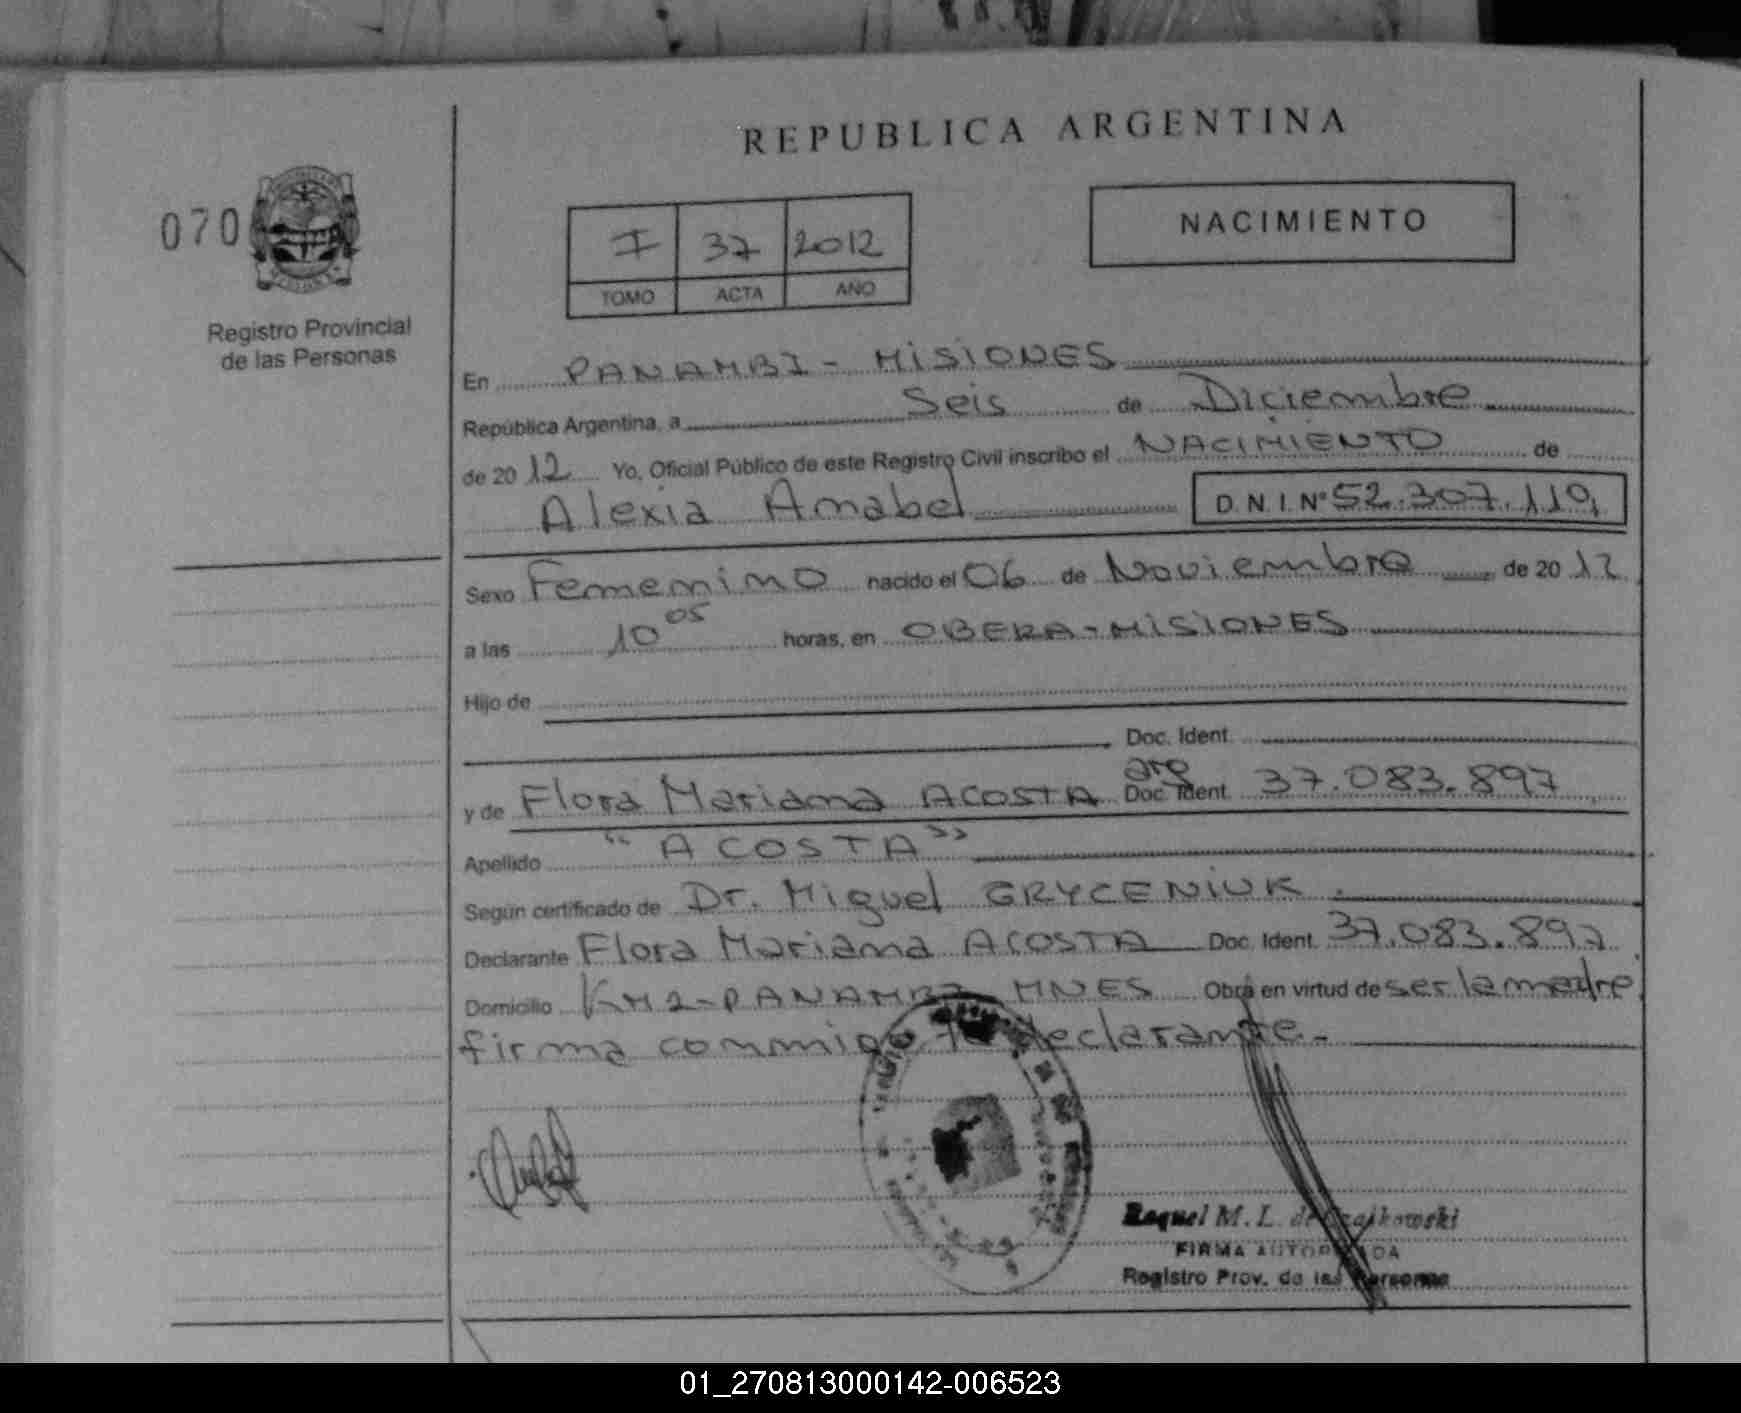 REPUBLICA ARGENTINA
070
NACIMIENTO
I 37 2012
TOMO ACTA AÑO
Registro Provincial
de las Personas
En PANAMBI - MISIONES
República Argentina, a Seis de Diciembre
de 20 12 Yo, Oficial Público de este Registro Civil inscribo el NACIMIENTO de
Alexia Anabel D.N.I. Nº 52.307.110
Sexo Femenino nacido el 06 de Noviembre de 20 12
a las 10 05 horas, en OBERA - MISIONES
Hijo de
Doc. Ident.
arg
y de Flora Mariana ACOSTA Doc. Ident. 37.083.897
Apellido "ACOSTA"
Según certificado de Dr. Miguel GRYCENIUK.
Declarante Flora Mariana ACOSTA Doc. Ident. 37.083.897
Domicilio KM2-PANAMBI MNES Obra en virtud de ser la madre
firma conmigo la declarante.-
Raquel M. L. de Czajkowski
FIRMA AUTORIZADA
Registro Prov. de las Personas
01_270813000142-006523